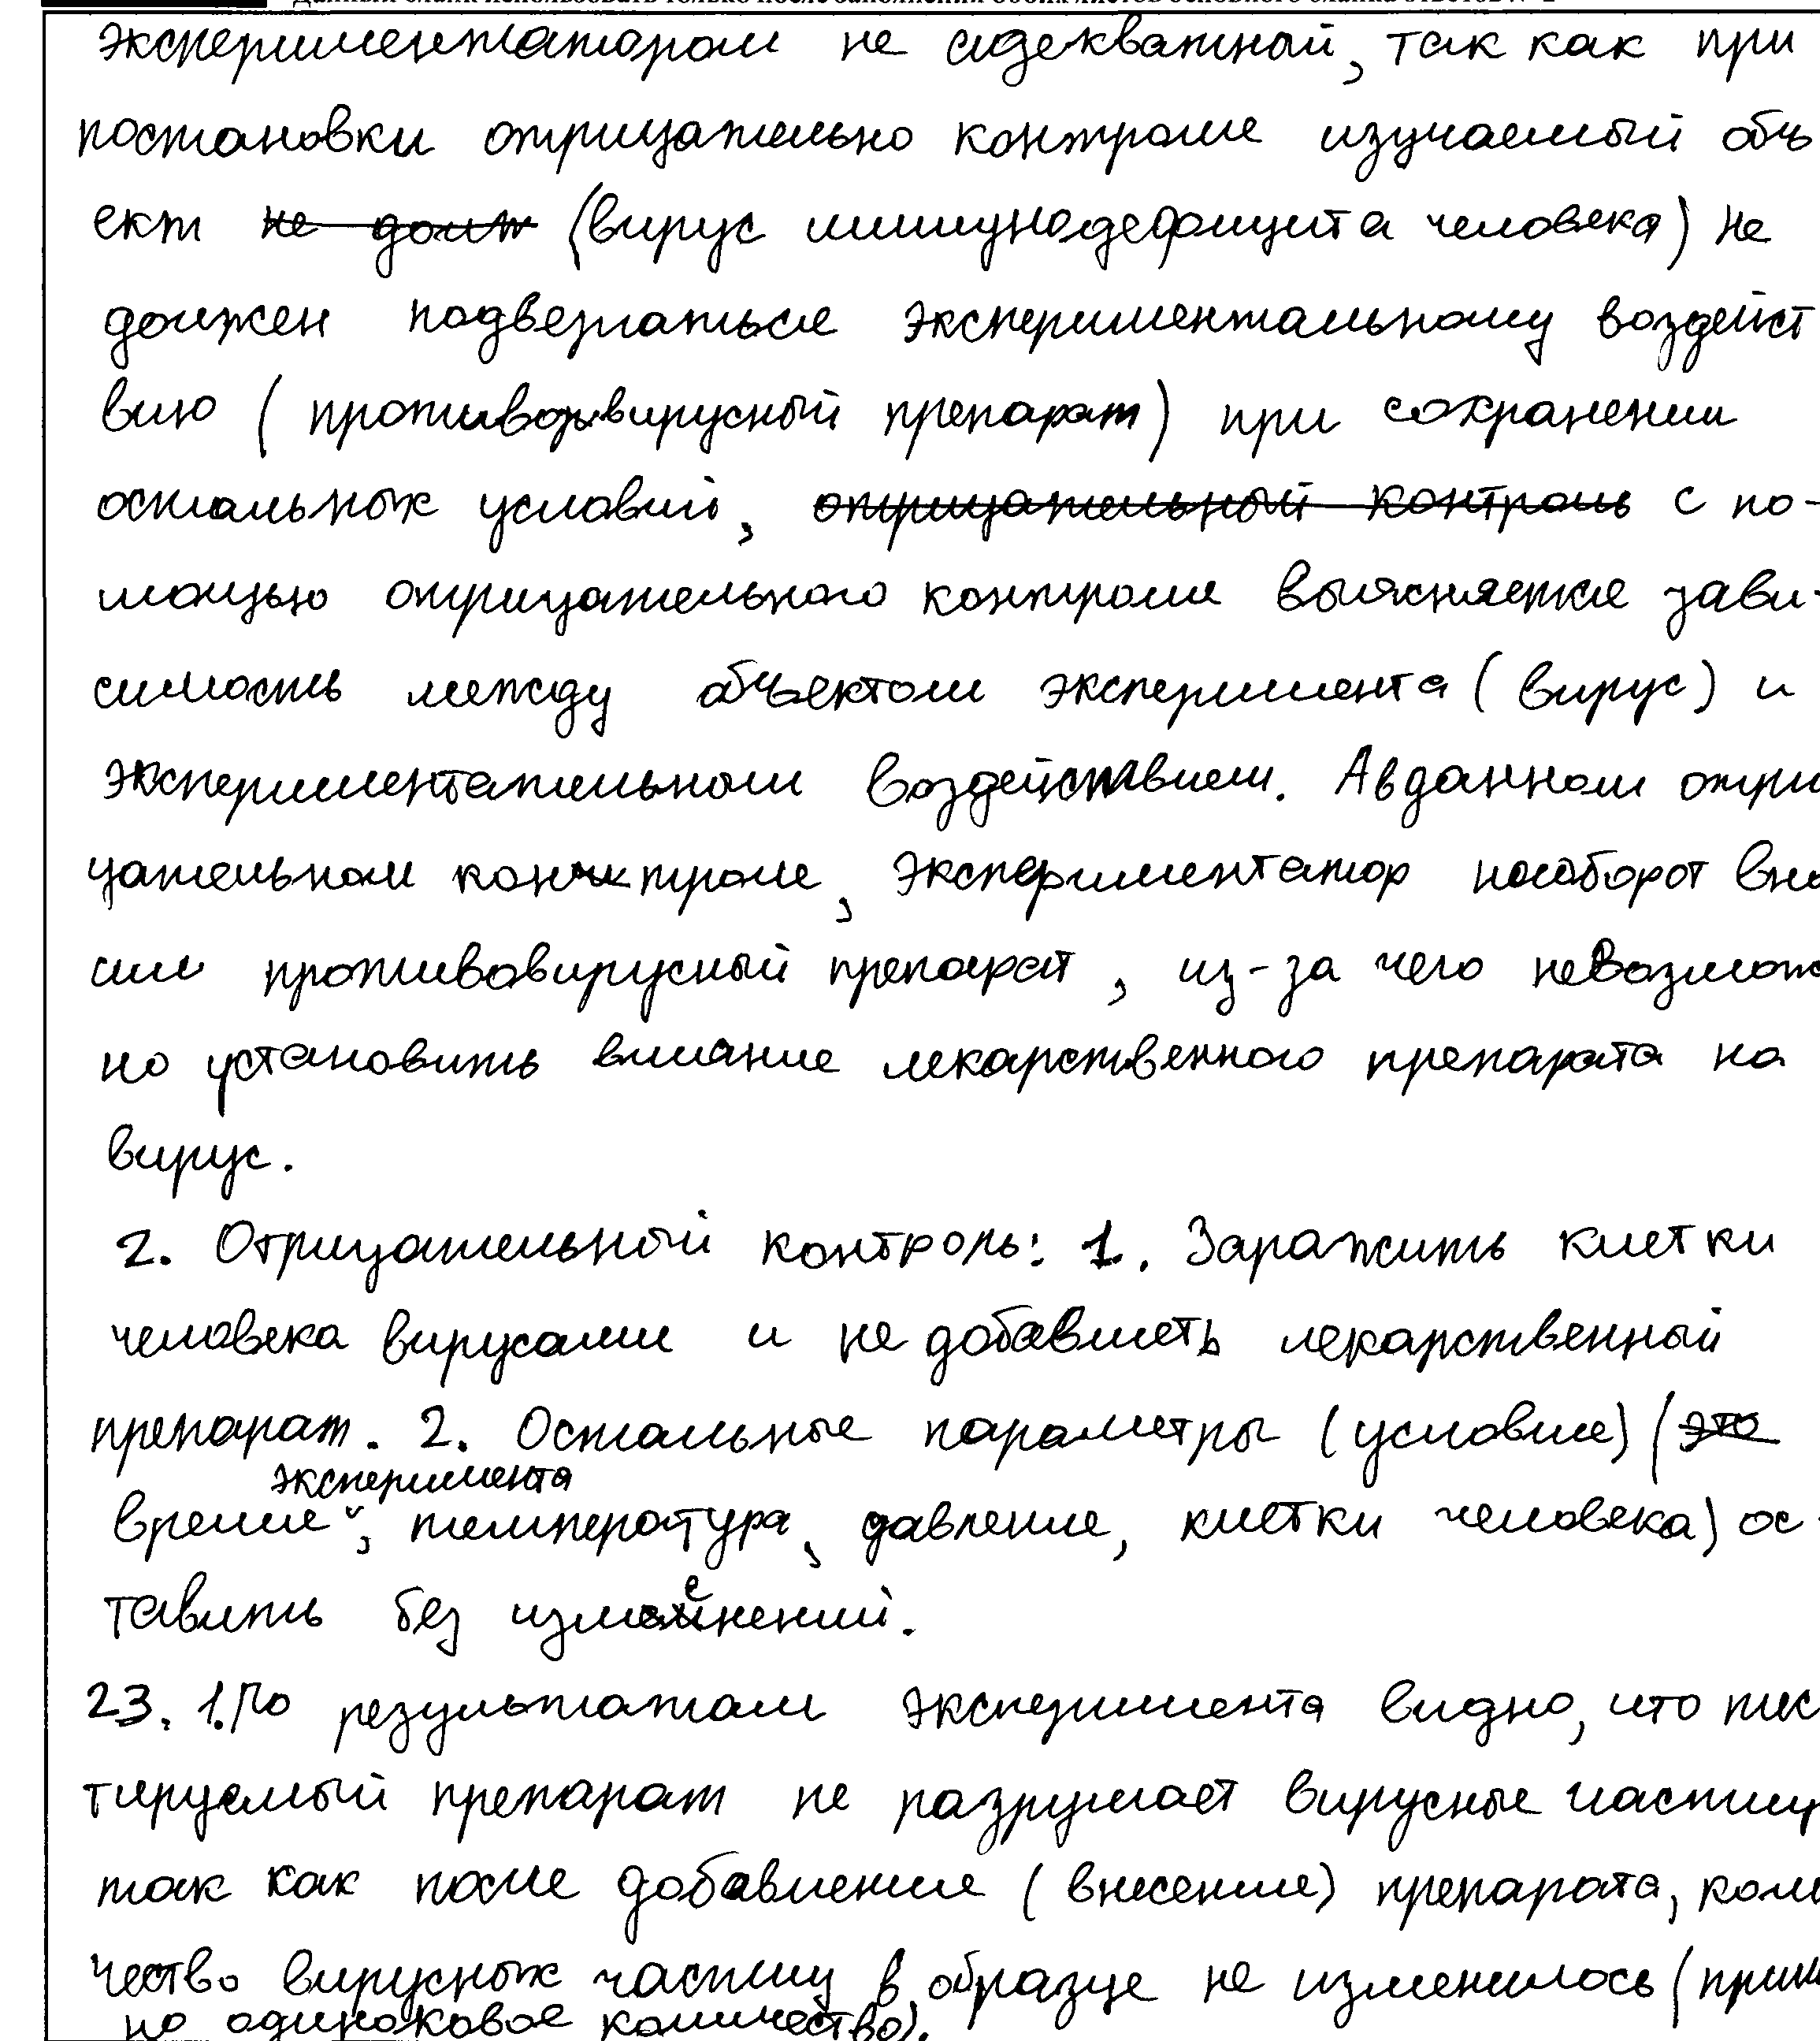 экспериментатором не адекватный, так как при
постановки отрицательно контроля изучаемый объ
ект не долж (вирус иммунодефицита человека) не
должен подвергаться экспериментальному воздейст
вию (противовирусный препарат) при сохранении
остальных условий, отрицательный контроль с по-
мощью отрицательного контроля выясняется зави-
симость между объектом эксперимента (вирус) и
экспериментательном воздействием. А в данном отри
цательном контроле, экспериментатор наоборот вно
сил противовирусный препарат, из-за чего невозмож
но установить влияние лекарственного препарата на
вирус.
2. Отрицательный контроль: 1. Заражить клетки
человека вирусами и не добавлять лекарственный
препарат. 2. Остальные параметры (условие) (это
эксперимента
время, температура, давление, клетки человека) ос-
тавить без изменений.
23. 1. По результатам эксперимента видно, что тес
тируемый препарат не разрушает вирусные частиц
так как после добавление (внесение) препарата, коли
чество вирусных частиц в образце не изменилось (прим
но одинаковое количество).